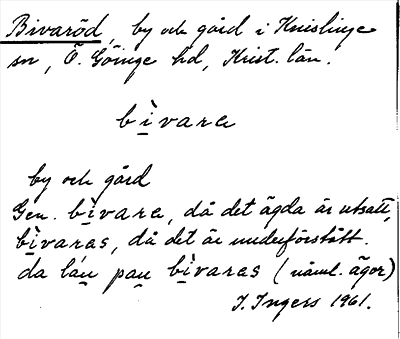 Bivaröd, by och gård i Knislinge
sn, Ö. Göinge hd, Krist. län.
bı̱̀vara
by och gård
Gen. bı̱̀vara, då det ägda är utsatt,
bı̱̀varas, då det är underförstått.
da láu̱ pau̱ bı̱̀varas (näml. ägor)
I. Ingers 1961.